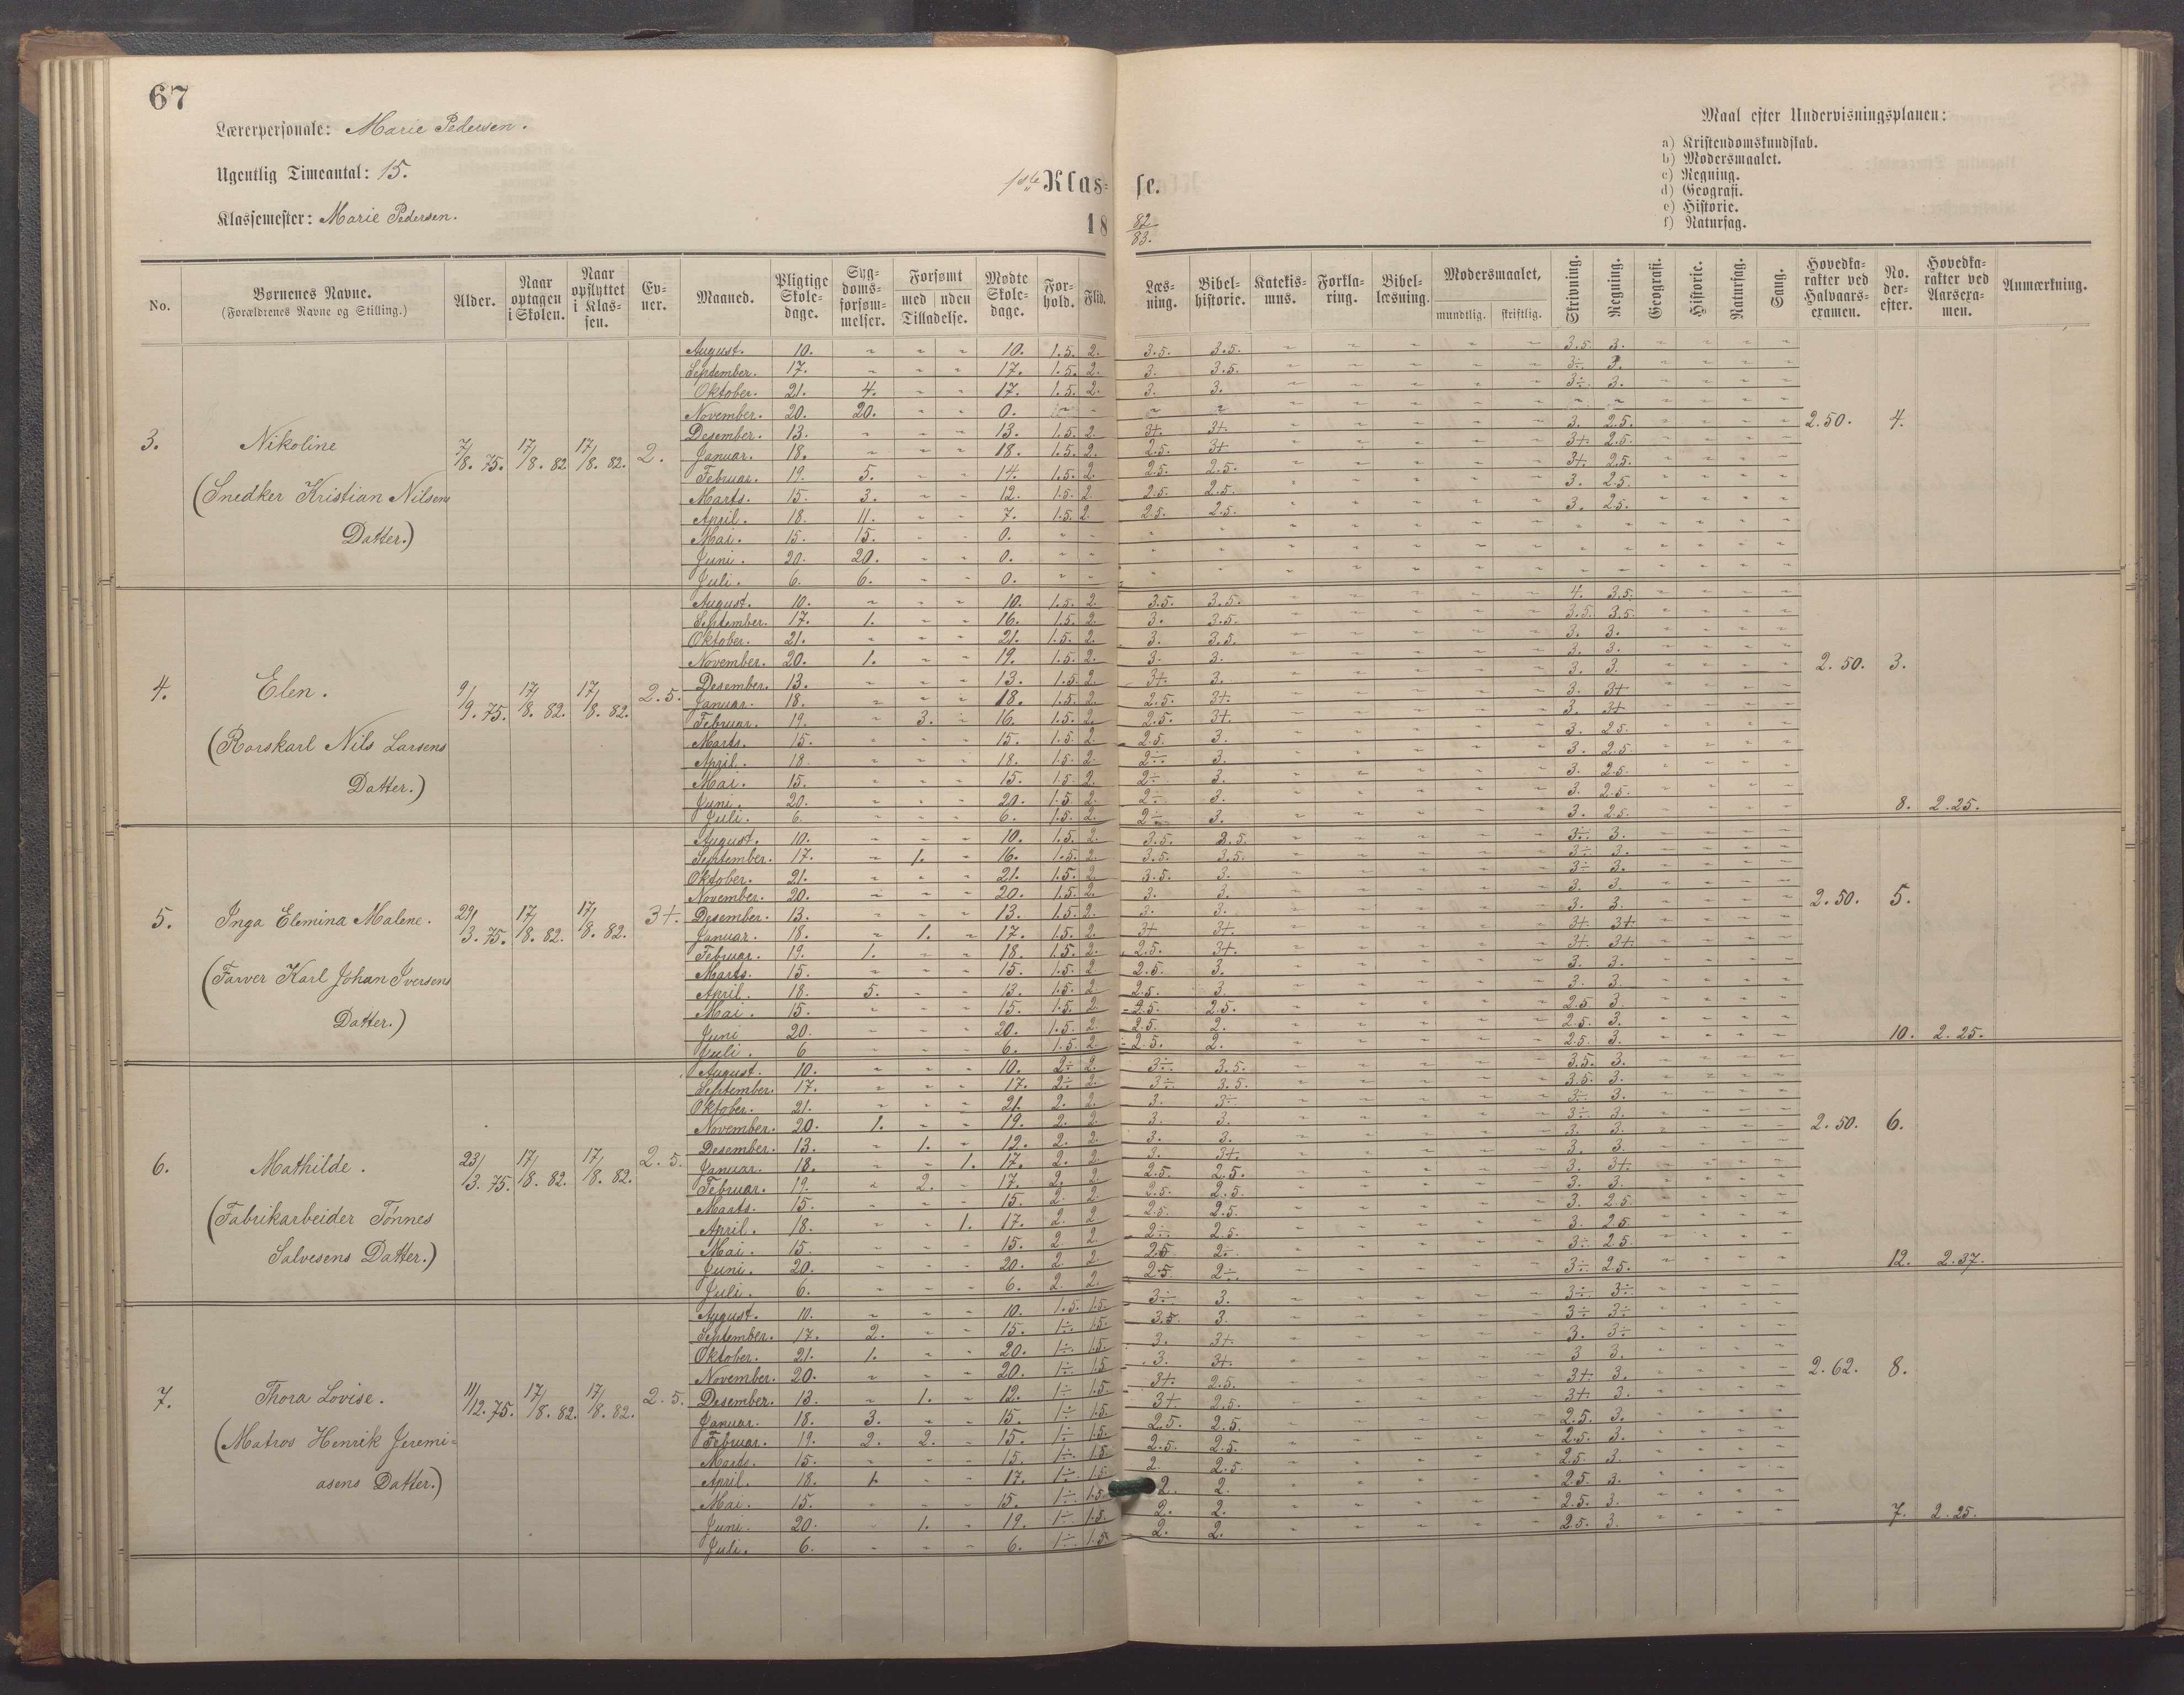 67
Lærerpersonale: Marie Pedersen.
Ugentlig Timeantal: 15.
Klassemester: Marie Pedersen.
1ste Klas= se.
18 82/83.
Maal efter Undervisningsplanen:
a) Kristendomskundskab.
b) Modersmaalet.
c) Regning.
d) Geografi.
e) Historie.
f) Naturfag.
No. Børnenes Navne. (Forældrenes Navne og Stilling.) Alder. Naar optagen i Skolen. Naar opflyttet i Klassen. Evner. Maaned. Pligtige Skoledage. Sygdomsforsømmelser. Forsømt med uden Tilladelse. Mødte Skoledage. Forhold. Flid. Læsning. Bibelhistorie. Katekismus. Forklaring. Bibellæsning. Modersmaalet, mundtlig. skriftlig. Skrivning. Regning. Geografi. Historie. Naturfag. Sang. Hovedkarakter ved Halvaarsexamen. No. derefter. Hovedkarakter ved Aarsexamen. Anmærkning.
3. Nikoline (Snedker Kristian Nilsens Datter.) 7/8. 75. 17/8. 82 17/8. 82. 2. 2.50. 4.
August. 10. " " " 10. 1.5. 2. 3.5. 3.5. 3.5. 3.
September. 17. " " " 17. 1.5. 2. 3. 3.5. 3÷. 3.
Oktober. 21. 4. " " 17. 1.5. 2. 3. 3. 3÷. 3.
November. 20. 20. " " 0. " " " "
Desember. 13. " " " 13. 1.5. 2. 3+. 3+. 3. 2.5.
Januar. 18. " " " 18. 1.5. 2. 2.5. 3+ 3+. 2.5.
Februar. 19. 5. " " 14. 1.5. 2. 2.5. 2.5. 3+. 2.5.
Marts. 15. 3. " " 12. 1.5. 2. 2.5. 2.5. 3. 2.5.
April. 18. 11. " " 7. 1.5. 2. 2.5. 2.5. 3. 2.5.
Mai. 15. 15. " " 0. " "
Juni. 20. 20. " " 0. " "
Juli. 6. 6. " " 0. " "
4. Elen. (Rorskarl Nils Larsens Datter.) 9/9. 75. 17/8. 82. 17/8. 82. 2.5. 2.50. 3.
August. 10. " " " 10. 1.5. 2. 3.5. 3.5. 4. 3.5.
September. 17. 1. " " 16. 1.5. 2. 3. 3.5. 3.5. 3.5.
Oktober. 21. " " " 21. 1.5. 2. 3. 3.5. 3. 3.
November. 20. 1. " " 19. 1.5. 2. 3. 3. 3. 3.
Desember. 13. " " " 13. 1.5. 2. 3+. 3. 3. 3.
Januar. 18. " " " 18. 1.5. 2. 2.5. 3+. 3. 3+
Februar. 19. " 3. " 16. 1.5. 2. 2.5. 3+. 3. 3+
Marts. 15. " " " 15. 1.5. 2. 2.5. 3. 3. 2.5.
April. 18. " " " 18. 1.5. 2. 2÷. 3. 3. 2.5.
Mai. 15. " " " 15. 1.5. 2. 2÷. 3. 3. 2.5.
Juni. 20. " " " 20. 1.5. 2. 2÷. 3. 3. 2.5.
Juli. 6. " " " 6. 1.5. 2. 2÷. 3. 3. 2.5. 8. 2.25.
5. Inga Elemina Malene. (Farver Karl Johan Iversens Datter.) 29/3. 75. 17/8. 82. 17/8. 82. 3+. 2.50. 5.
August. 10. " " " 10. 1.5. 2. 3.5. 3.5. 3÷. 3.
September. 17. " 1. " 16. 1.5. 2. 3.5. 3.5. 3÷. 3.
Oktober. 21. " " " 21. 1.5. 2. 3.5. 3. 3÷ 3.
November. 20. " " " 20. 1.5. 2. 3. 3. 3. 3.
Desember. 13. " " " 13. 1.5. 2. 3. 3. 3. 3.
Januar. 18. " 1. " 17. 1.5. 2. 3+ 3+. 3+ 3+
Februar. 19. 1. " " 18. 1.5. 2. 2.5. 3+. 3+. 3+.
Marts. 15. " " " 15. 1.5. 2 2.5. 3. 3. 3.
April. 18. 5. " " 13. 1.5. 2 2.5. 3 3. 3.
Mai. 15. " " " 15. 1.5. 2 2.5. 2.5. 2.5 3
Juni 20. " " " 20. 1.5. 2. 2.5. 2. 2.5. 3.
Juli. 6 " " " 6. 1.5. 2. 2.5. 2. 2.5. 3. 10. 2.25.
6. Mathilde. (Fabrikarbeider Tønnes Salvesens Datter.) 23/3. 75. 17/8. 82. 17/8. 82. 2.5. 2.50. 6.
August. 10. " " " 10. 2÷ 2. 3÷ 3.5. 3.5. 3.
September. 17. " " " 17. 2÷ 2. 3÷ 3.5. 3.5. 3.
Oktober. 21. " " " 21. 2. 2. 3. 3÷ 3÷. 3.
November. 20. 1. " " 19. 2. 2. 3. 3. 3÷. 3.
Desember. 13. " 1. " 12. 2. 2. 3. 3. 3. 3.
Januar. 18. " " 1. 17. 2. 2. 3. 3+. 3. 3.
Februar. 19. " 2. " 17. 2. 2. 2.5. 2.5. 3. 3+.
Marts. 15. " " " 15. 2. 2. 2.5. 2.5. 3. 3.
April. 18. " " 1. 17. 2. 2 2.5. 2.5. 3. 2.5.
Mai. 15. " " " 15. 2 2. 2÷ 2.5. 3. 2.5
Juni. 20. " " " 20. 2. 2 2.5 2÷. 3÷ 2.5.
Juli. 6. " " " 6. 2. 2. 2.5. 2÷. 3÷ 2.5. 12. 2.37.
7. Thora Lovise. (Matros Henrik Jeremi= asens Datter.) 11/12. 75. 17/8. 82. 17/8. 82. 2.5. 2.62. 8.
August. 10. " " " 10. 1.5. 1.5. 3÷ 3. 3÷ 3÷
September. 17. 2. " " 15. 1÷. 1.5. 3.5. 3. 3÷ 3÷
Oktober. 21. 1. " " 20. 1÷. 1.5. 3. 3+. 3. 3÷
November. 20. " " " 20. 1÷. 1.5 3. 3+. 3 3.
Desember. 13. " 1. " 12. 1÷ 1.5. 3+. 2.5. 3+. 3.
Januar. 18. 3. " " 15. 1÷ 1.5 3+. 2.5. 3+. 3.
Februar. 19. 2. 2. " 15. 1÷ 1.5. 2.5. 2.5. 2.5. 3.
Marts. 15. " " " 15. 1÷ 1.5 2.5. 2.5. 2.5. 3.
April. 18. 1. " " 17. 1÷ 1.5. 2. 2.5. 2.5. 3.
Mai. 15. " " " 15. 1÷ 1.5. 2. 2. 2.5. 3.
Juni. 20. " 1. " 19. 1÷ 1.5. 2. 2. 2.5. 3.
Juli. 6. " " " 6. 1÷ 1.5. 2. 2. 2.5. 3. 7. 2.25.